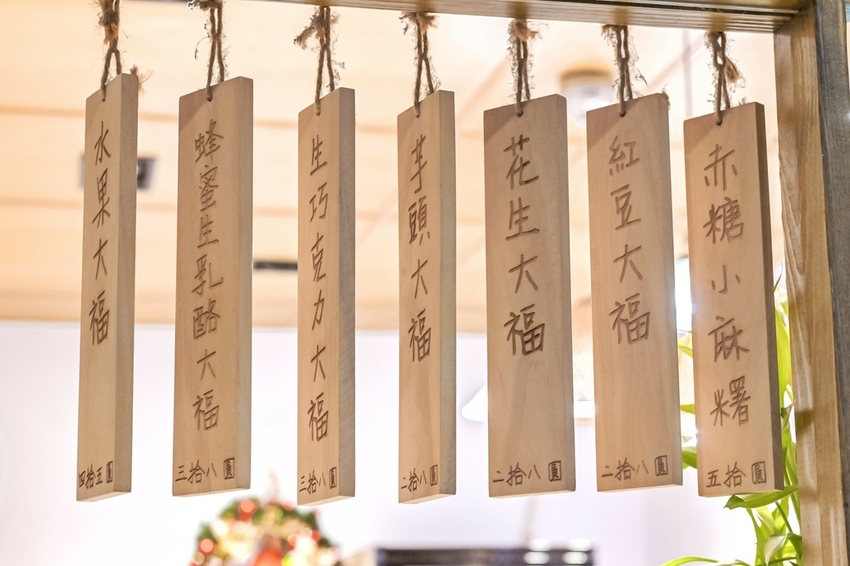 赤糖小麻糬
五拾圓
紅豆大福
二拾八圓
花生大福
二拾八圓
芋頭大福
二拾八圓
生巧克力大福
三拾八圓
蜂蜜生乳酪大福
三拾八圓
水果大福
四拾五圓